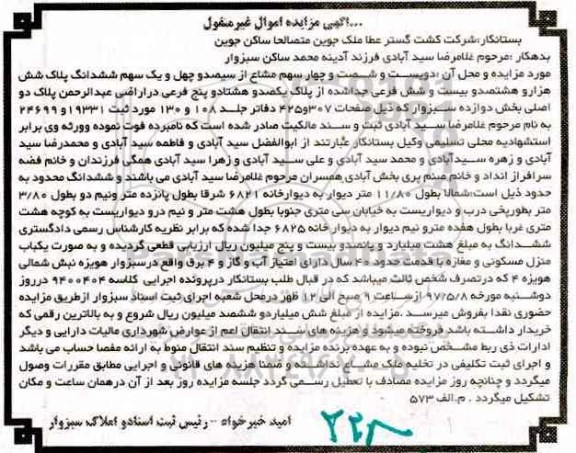 ...آگهی مزایده اموال غیرمنقول
بستانکار:شرکت کشت گستر عطا ملک جوین متصالحا ساکن جوین
بدهکار :مرحوم غلامرضا سید آبادی فرزند آدینه محمد ساکن سبزوار
مورد مزایده و محل آن :دویست و شصت و چهار سهم مشاع از سیصدو چهل و یک سهم ششدانگ پلاک شش
هزارو هشتصدو بیست و شش فرعی جداشده از پلاک یکصدو هشتادو پنج فرعی دراراضی عبدالرحمن پلاک دو
اصلی بخش دوازده سبزوار که ذیل صفحات ۳۰۷و۴۲۵ دفاتر جلد ۱۰۸ و ۱۳۰ مورد ثبت ۱۹۳۳۱و ۲۴۶۹۹
به نام مرحوم غلامرضا سید آبادی ثبت و سند مالکیت صادر شده است که نامبرده فوت نموده وورثه وی برابر
استشهادیه محلی تسلیمی وکیل بستانکار عبارتند از ابوالفضل سید آبادی و فاطمه سید آبادی و محمدرضا سید
آبادی و زهره سیدآبادی و محمد سید آبادی و علی سید آبادی و زهرا سید آبادی همگی فرزندان و خانم فضه
سرافراز انداد و خانم صنم پری بخش آبادی همسران مرحوم غلامرضا سید آبادی می باشند و ششدانگ محدود به
حدود ذیل است:شمالا بطول ۱۱/۸۰ متر دیوار به دیوارخانه ۶۸۲۱ شرقا بطول پانزده متر ونیم دو بطول ۳/۸۰
متر بطورپخی درب و دیواریست به خیابان سی متری جنوبا بطول هشت متر و نیم درو دیواریست به کوچه هشت
متری غربا بطول هفده مترو نیم دیوار به دیوار خانه ۶۸۲۵ جدا شده که برابر نظریه کارشناس رسمی دادگستری
ششدانگ به مبلغ هشت میلیارد و پانصدو بیست و پنج میلیون ریال ارزیابی قطعی گردیده و به صورت یکباب
منزل مسکونی و مغازه با قدمت حدود ۴۰ سال دارای امتیاز آب و گاز و ۴ برق واقع درسبزوار هویزه نبش شمالی
هویزه ۴ که درتصرف شخص ثالث میباشد که در قبال طلب بستانکار درپرونده اجرایی کلاسه ۹۴۰۰۴۰۴ درروز
دوشنبه مورخه ۹۷/۵/۸ ازساعت ۹ صبح الی ۱۲ ظهر درمحل شعبه اجرای ثبت اسناد سبزوار ازطریق مزایده
حضوری نقدا بفروش میرسد .مزایده از مبلغ شش میلیاردو ششصد میلیون ریال شروع و به بالاترین رقمی که
خریدار داشته باشد فروخته میشود و هزینه های سند انتقال اعم از عوارض شهرداری مالیات دارایی و دیگر
ادارات ذی ربط مشخص نبوده و به عهده برنده مزایده و تنظیم سند انتقال منوط به ارائه مفصا حساب می باشد
و اجرای ثبت تکلیفی در تخلیه ملک مشاع نداشته و ضمنا هزینه های قانونی و اجرایی مطابق مقررات وصول
میگردد و چنانچه روز مزایده مصادف با تعطیل رسمی گردد جلسه مزایده روز بعد از آن درهمان ساعت و مکان
تشکیل میگردد . م.الف ۵۷۳
امید خیرخواه – رئیس ثبت اسنادو املاک سبزوار